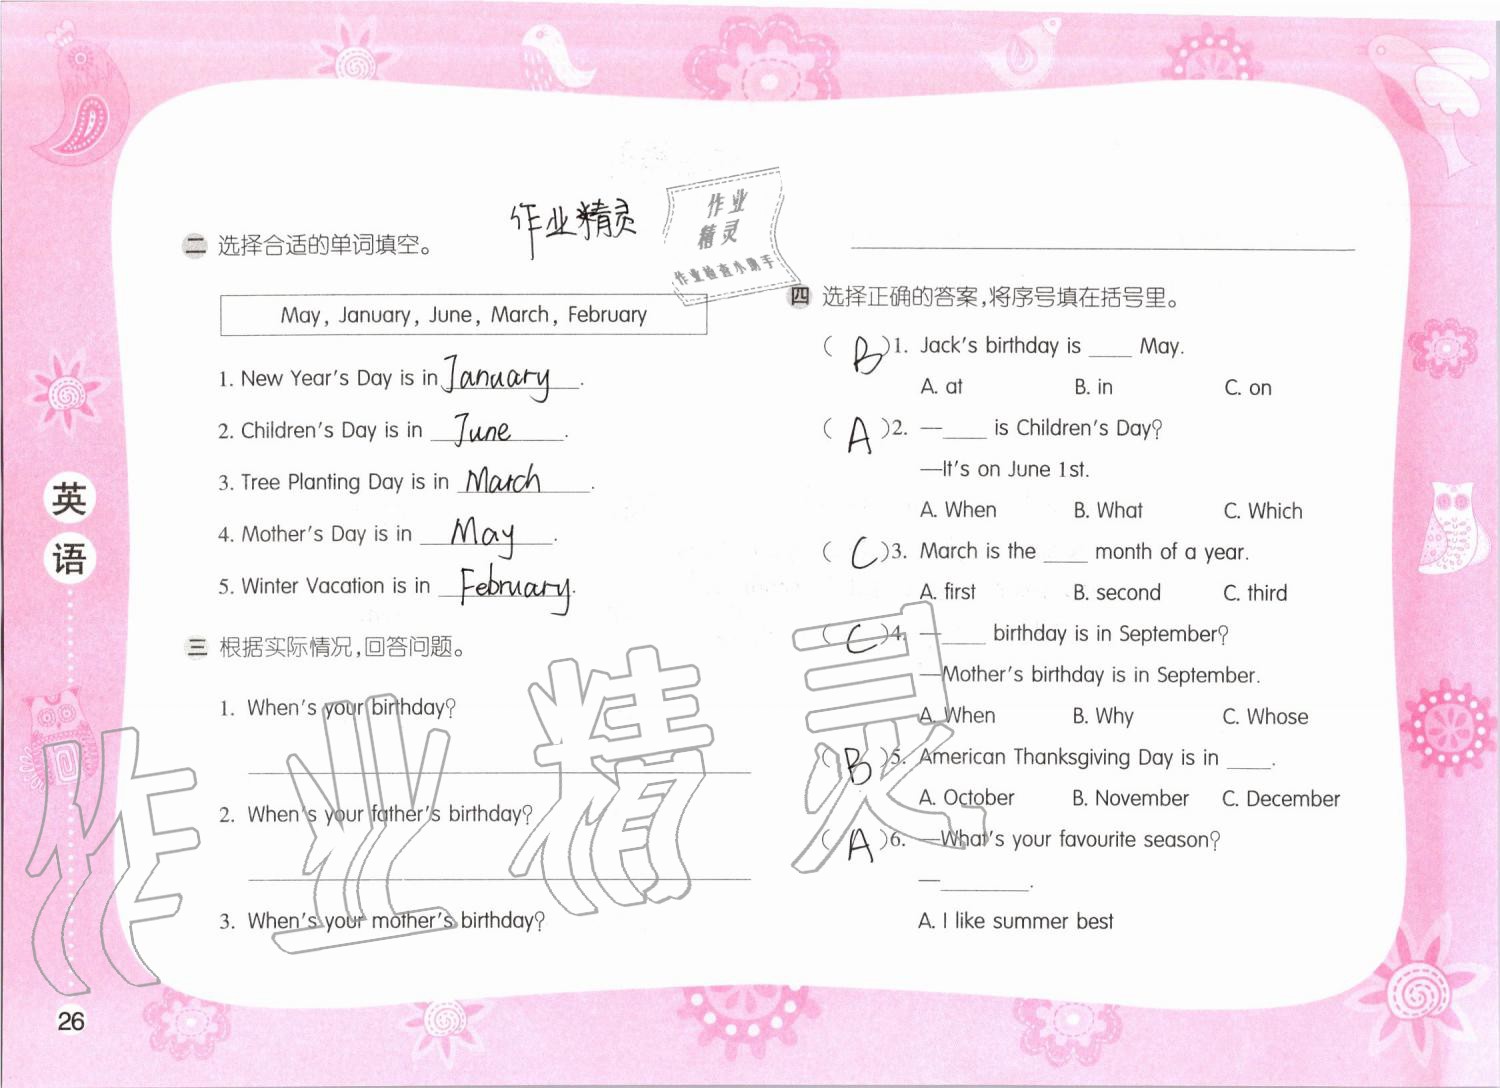 作业精灵
作业
精灵
作业检查小助手
二 选择合适的单词填空。
May, January, June, March, February
1. New Year's Day is in January.
2. Children's Day is in June.
3. Tree Planting Day is in March.
4. Mother's Day is in May.
5. Winter Vacation is in February.
三 根据实际情况,回答问题。
1. When's your birthday?
2. When's your father's birthday?
3. When's your mother's birthday?
四 选择正确的答案,将序号填在括号里。
( B )1. Jack's birthday is ____ May.
A. at B. in C. on
( A )2. —____ is Children's Day?
—It's on June 1st.
A. When B. What C. Which
( C )3. March is the ____ month of a year.
A. first B. second C. third
( C )4. —____ birthday is in September?
—Mother's birthday is in September.
A. When B. Why C. Whose
( B )5. American Thanksgiving Day is in ____.
A. October B. November C. December
( A )6. —What's your favourite season?
—________.
A. I like summer best
英
语
26
作业精灵